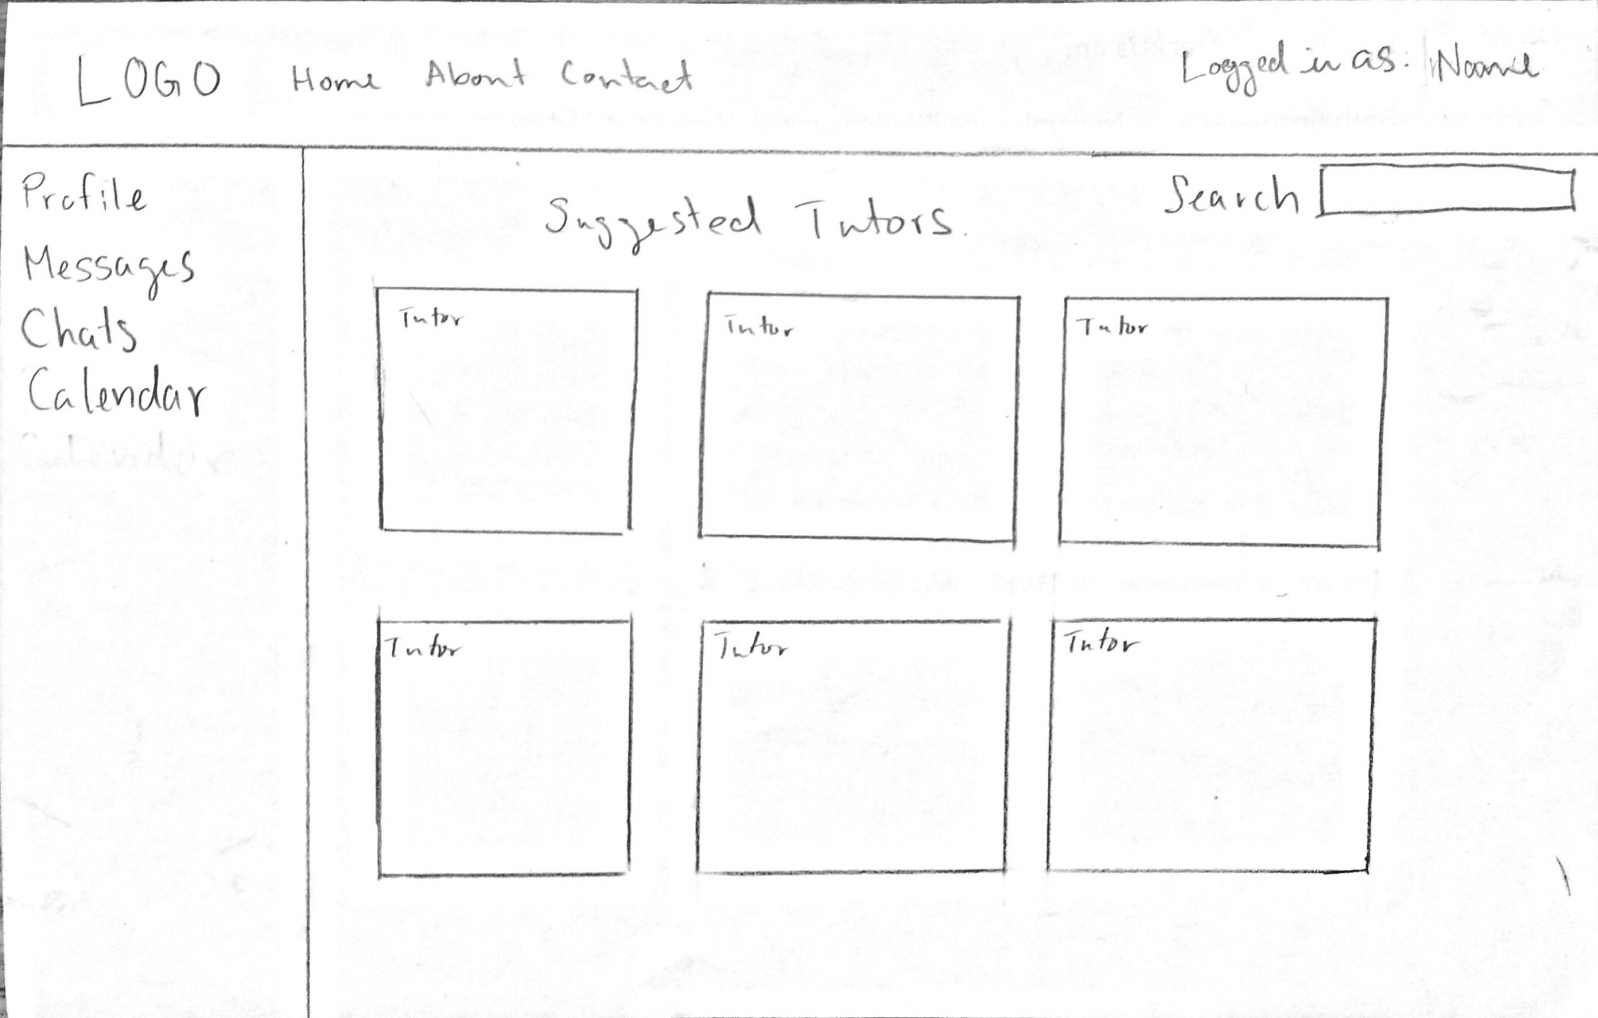 LOGO Home About Contact Logged in as: Name
Profile
Messages
Chats
Calendar
Search
Suggested Tutors.
Tutor Tutor Tutor
Tutor Tutor Tutor